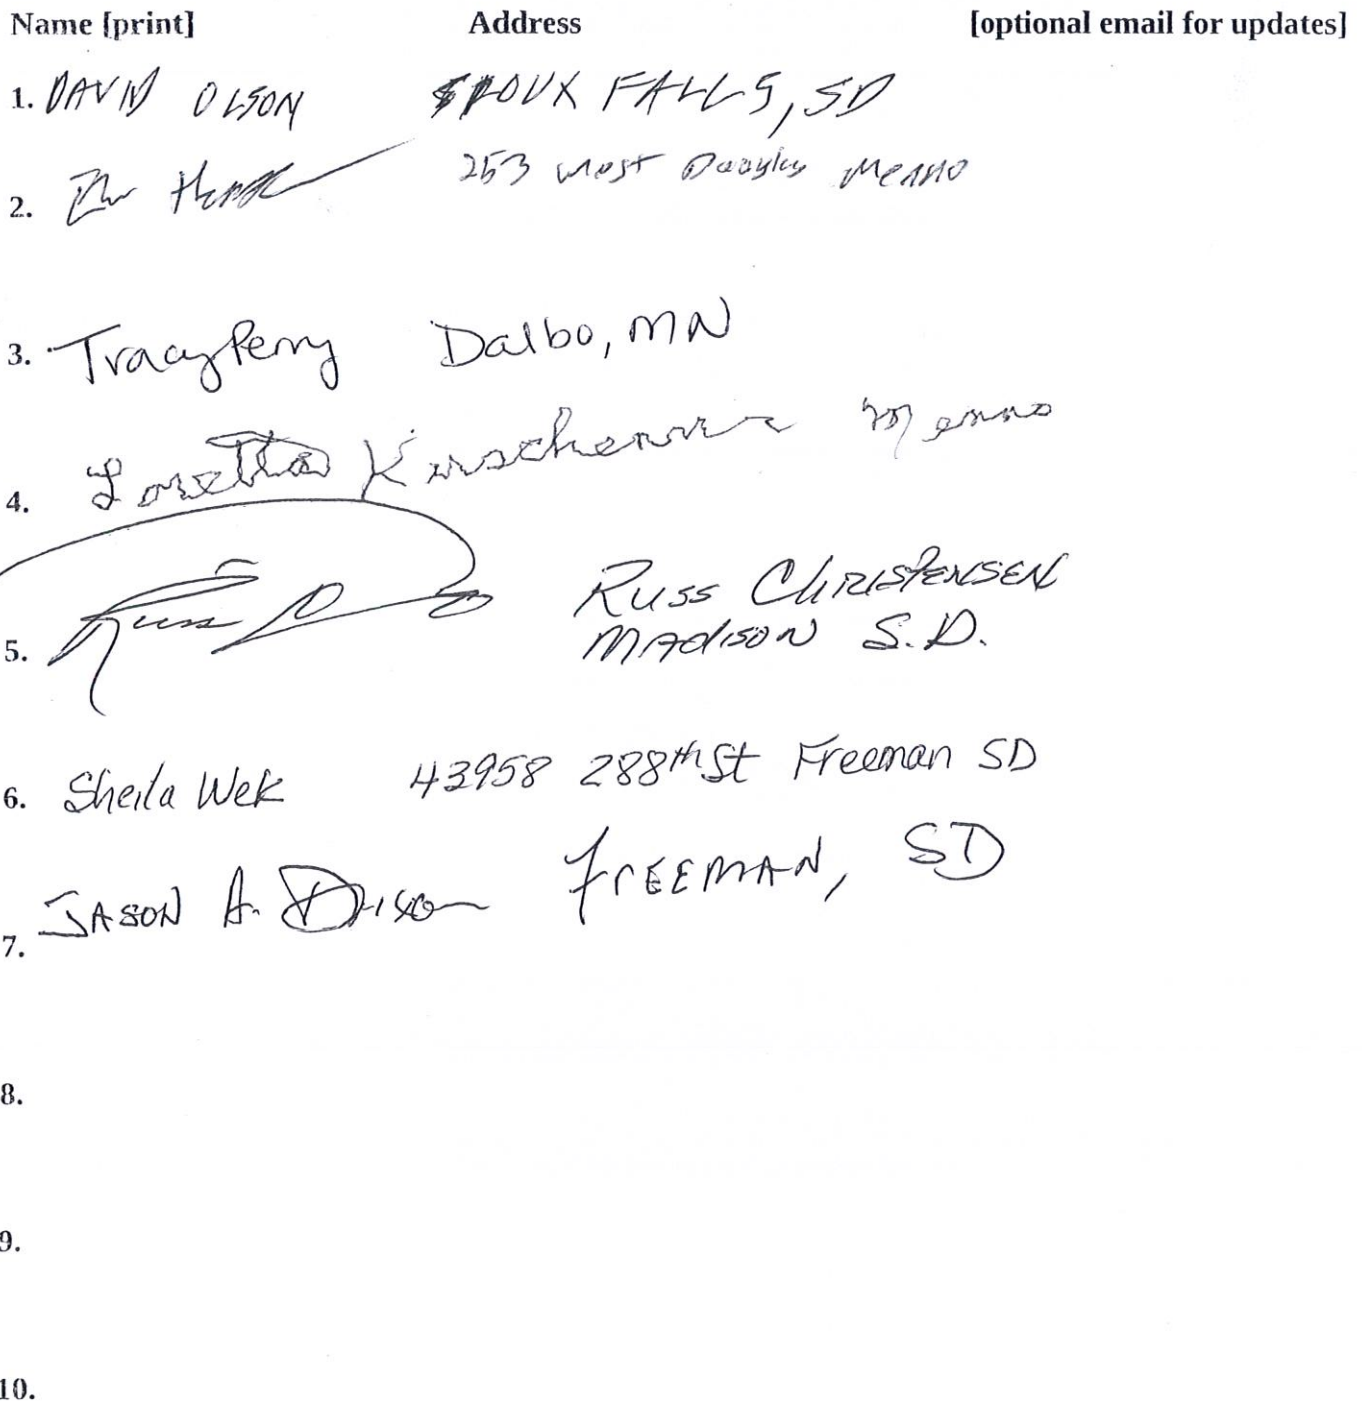 Name [print] Address [optional email for updates]
1. DAVID OLSON SIOUX FALLS, SD
2. 253 West Menno
3. Tracy Perry Dalbo, MN
4. Loretta Menno
5. Russ Russ Christensen
Madison S.D.
6. Sheila Wek 43958 288th St Freeman SD
7. JASON A. FREEMAN, SD
8.
9.
10.